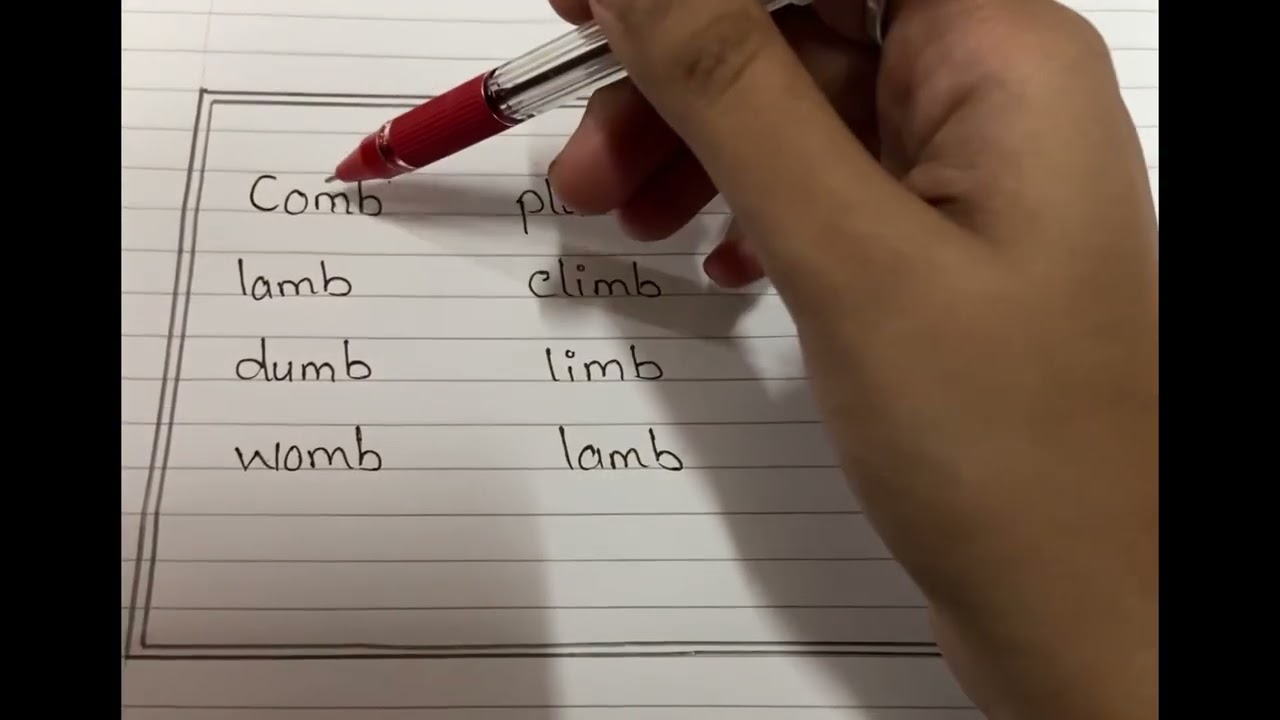 Comb
lamb climb
dumb limb
womb lamb